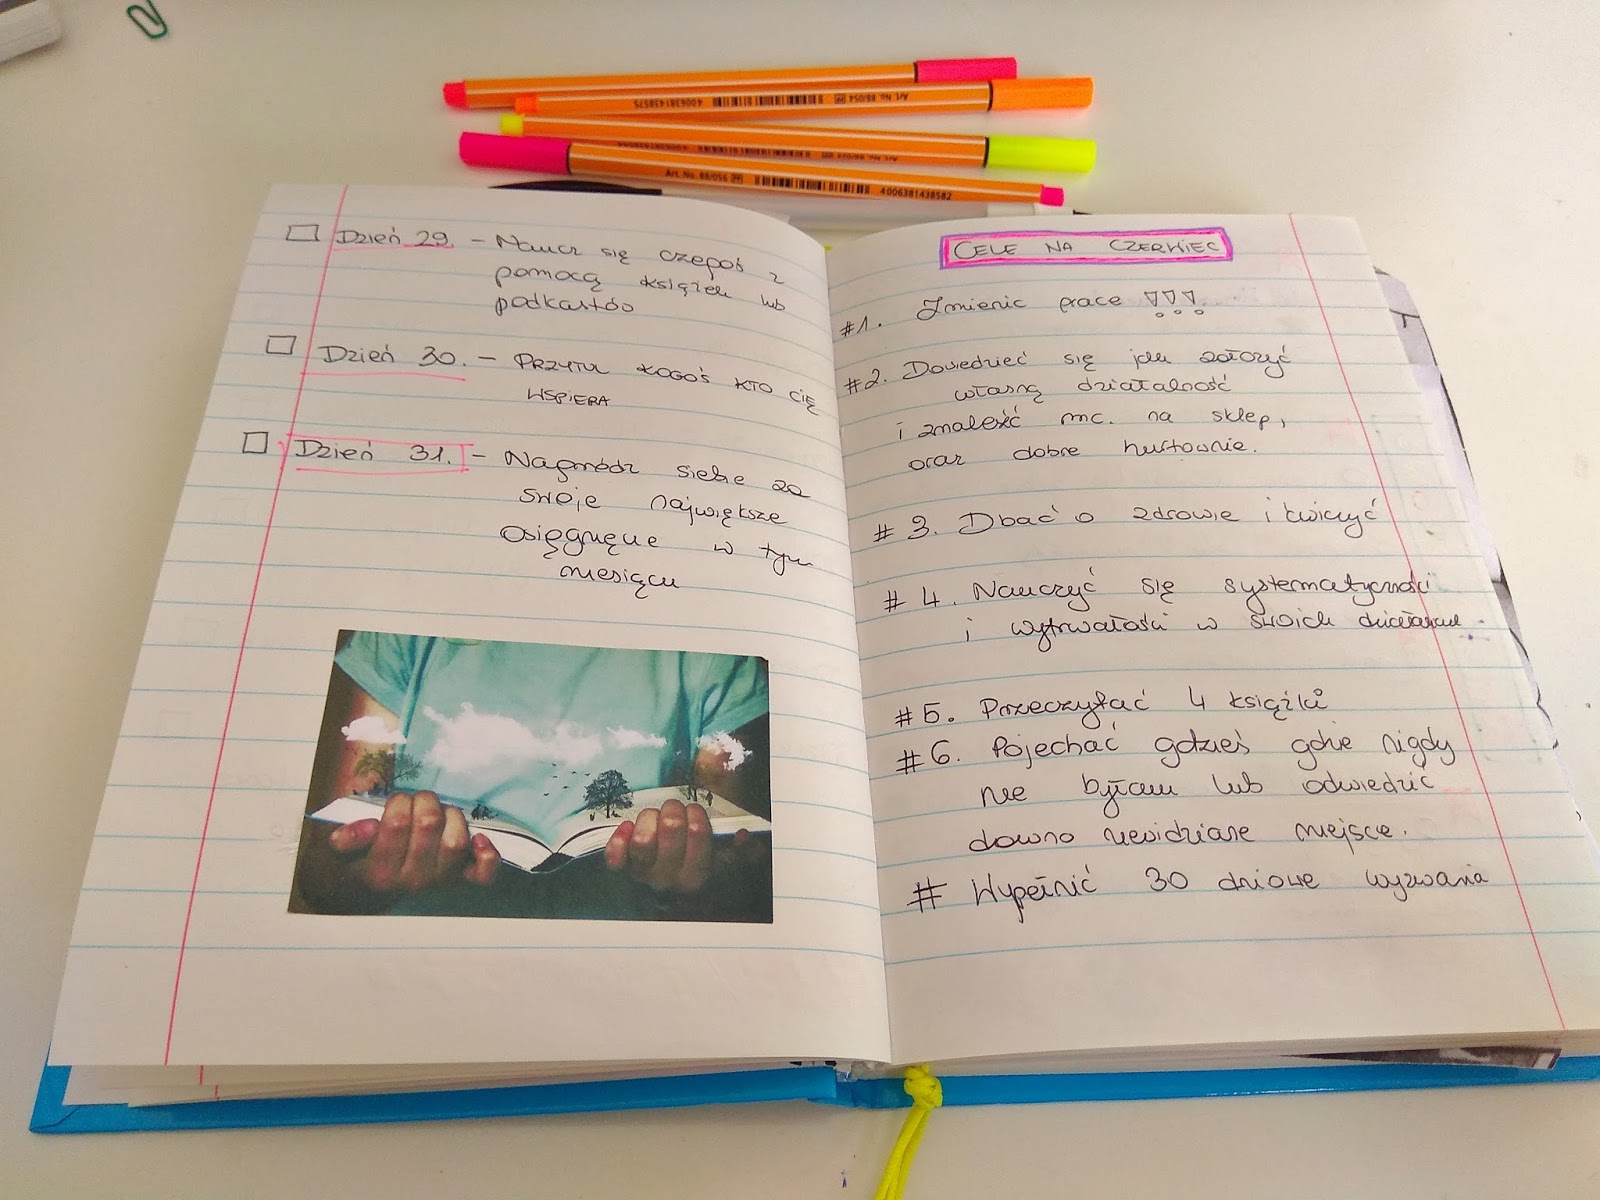 Art. No. 88/054 4006381438575
Art. No. 88/056 4006381438582
Dzień 29. - Naucz się czegoś z
pomocą książek lub
podkastów
Dzień 30. - PRZYTUL KOGOŚ KTO CIĘ
WSPIERA
Dzień 31. - Nagródz siebie za
swoje największe
osięgnięcie w tym
miesiącu
CELE NA CZERWIEC
#1. Zmienic prace !!!
#2. Dowiedzieć się jak założyć
własną działalność
i znaleźć mc. na sklep,
oraz dobre hurtownie.
# 3. Dbać o zdrowie i ćwiczyć
# 4. Nauczyć się systematyczności
i wytrwałości w swoich działaniach.
#5. Przeczytać 4 książki
#6. Pojechać gdzieś gdzie nigdy
nie byłam lub odwiedzić
dawno niewidziane miejsce.
# Wypełnić 30 dniowe wyzwania